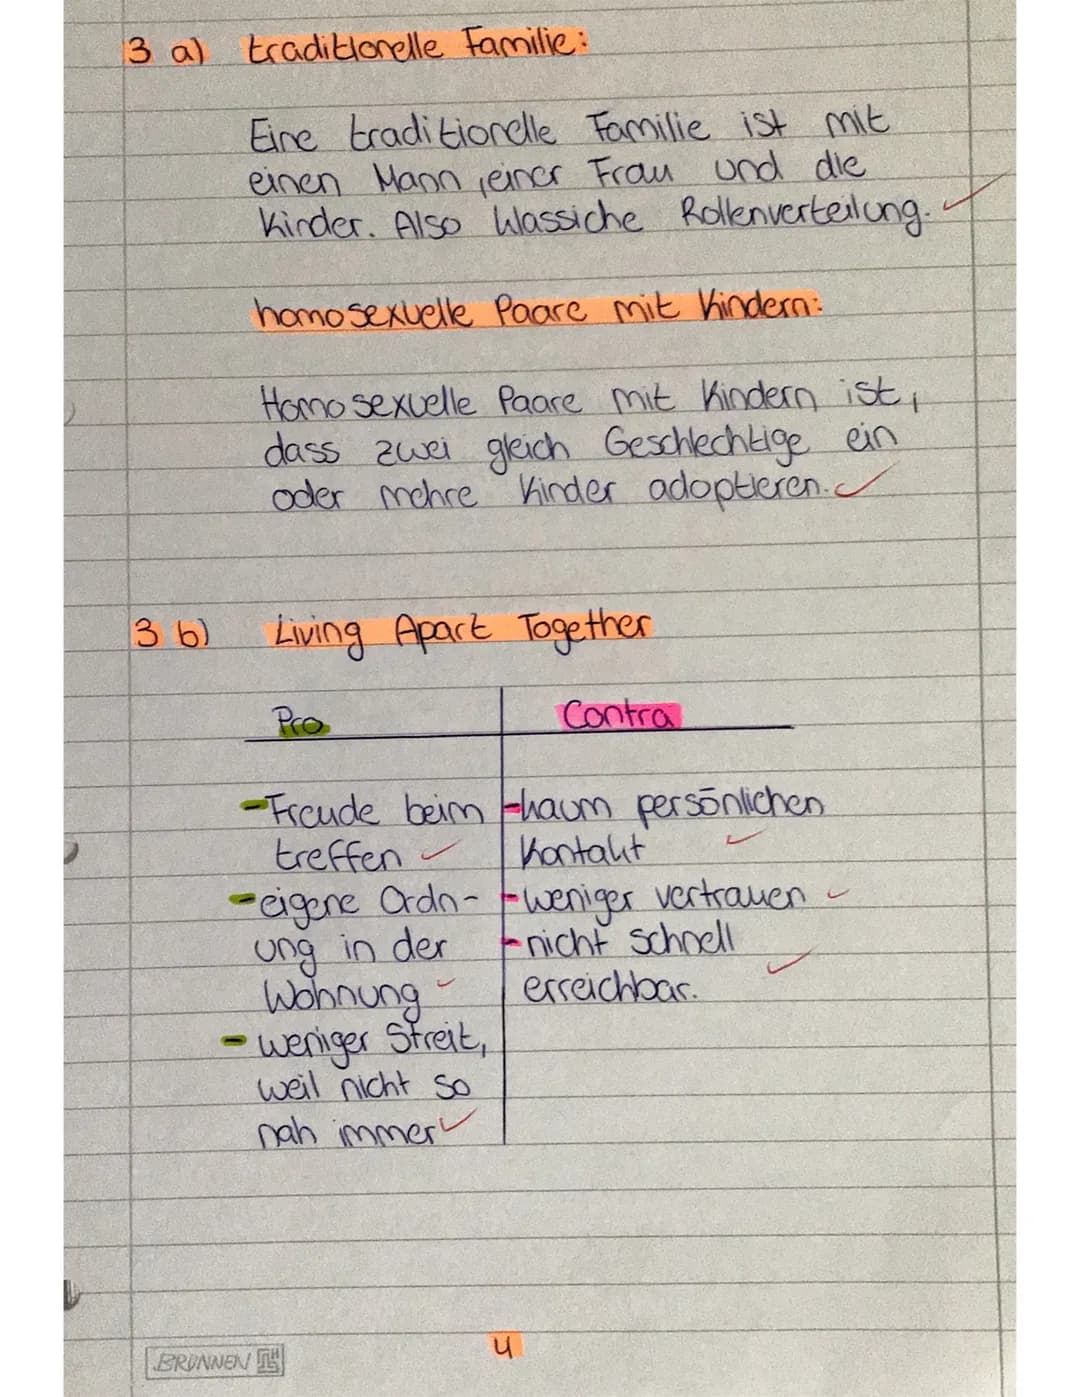 3 a) traditionelle Familie:
Eine traditionelle Familie ist mit
einen Mann, einer Frau und die
Kinder. Also klassiche Rollenverteilung.
homosexuelle Paare mit Kindern:
Homosexuelle Paare mit Kindern ist,
dass zwei gleich Geschlechtige ein
oder mehre Kinder adoptieren.
3 b) Living Apart Together
Pro
- Freude beim
treffen
- eigene Ordn-
ung in der
Wohnung
- weniger Streit,
weil nicht so
nah immer
Contra
- kaum persönlichen
Kontakt
- weniger vertrauen
- nicht schnell
erreichbar.
BRUNNEN
4